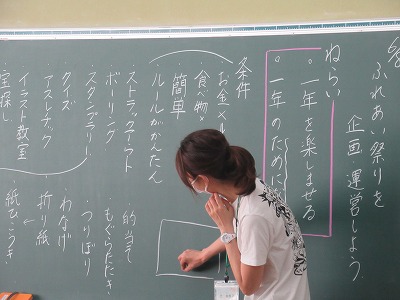 6/8
ふれあい祭りを
企画・運営しよう。
ねらい
。一年を楽しませる
。一年のために
条件
お金×
食べ物×
簡単
ルールがかんたん
ストラックアウト
ボーリング
スタンプラリー
クイズ
アスレチック
イラスト教室
宝探し
的当て
もぐらたたき
つりぼり
わなげ
折り紙
↓
紙ひこうき